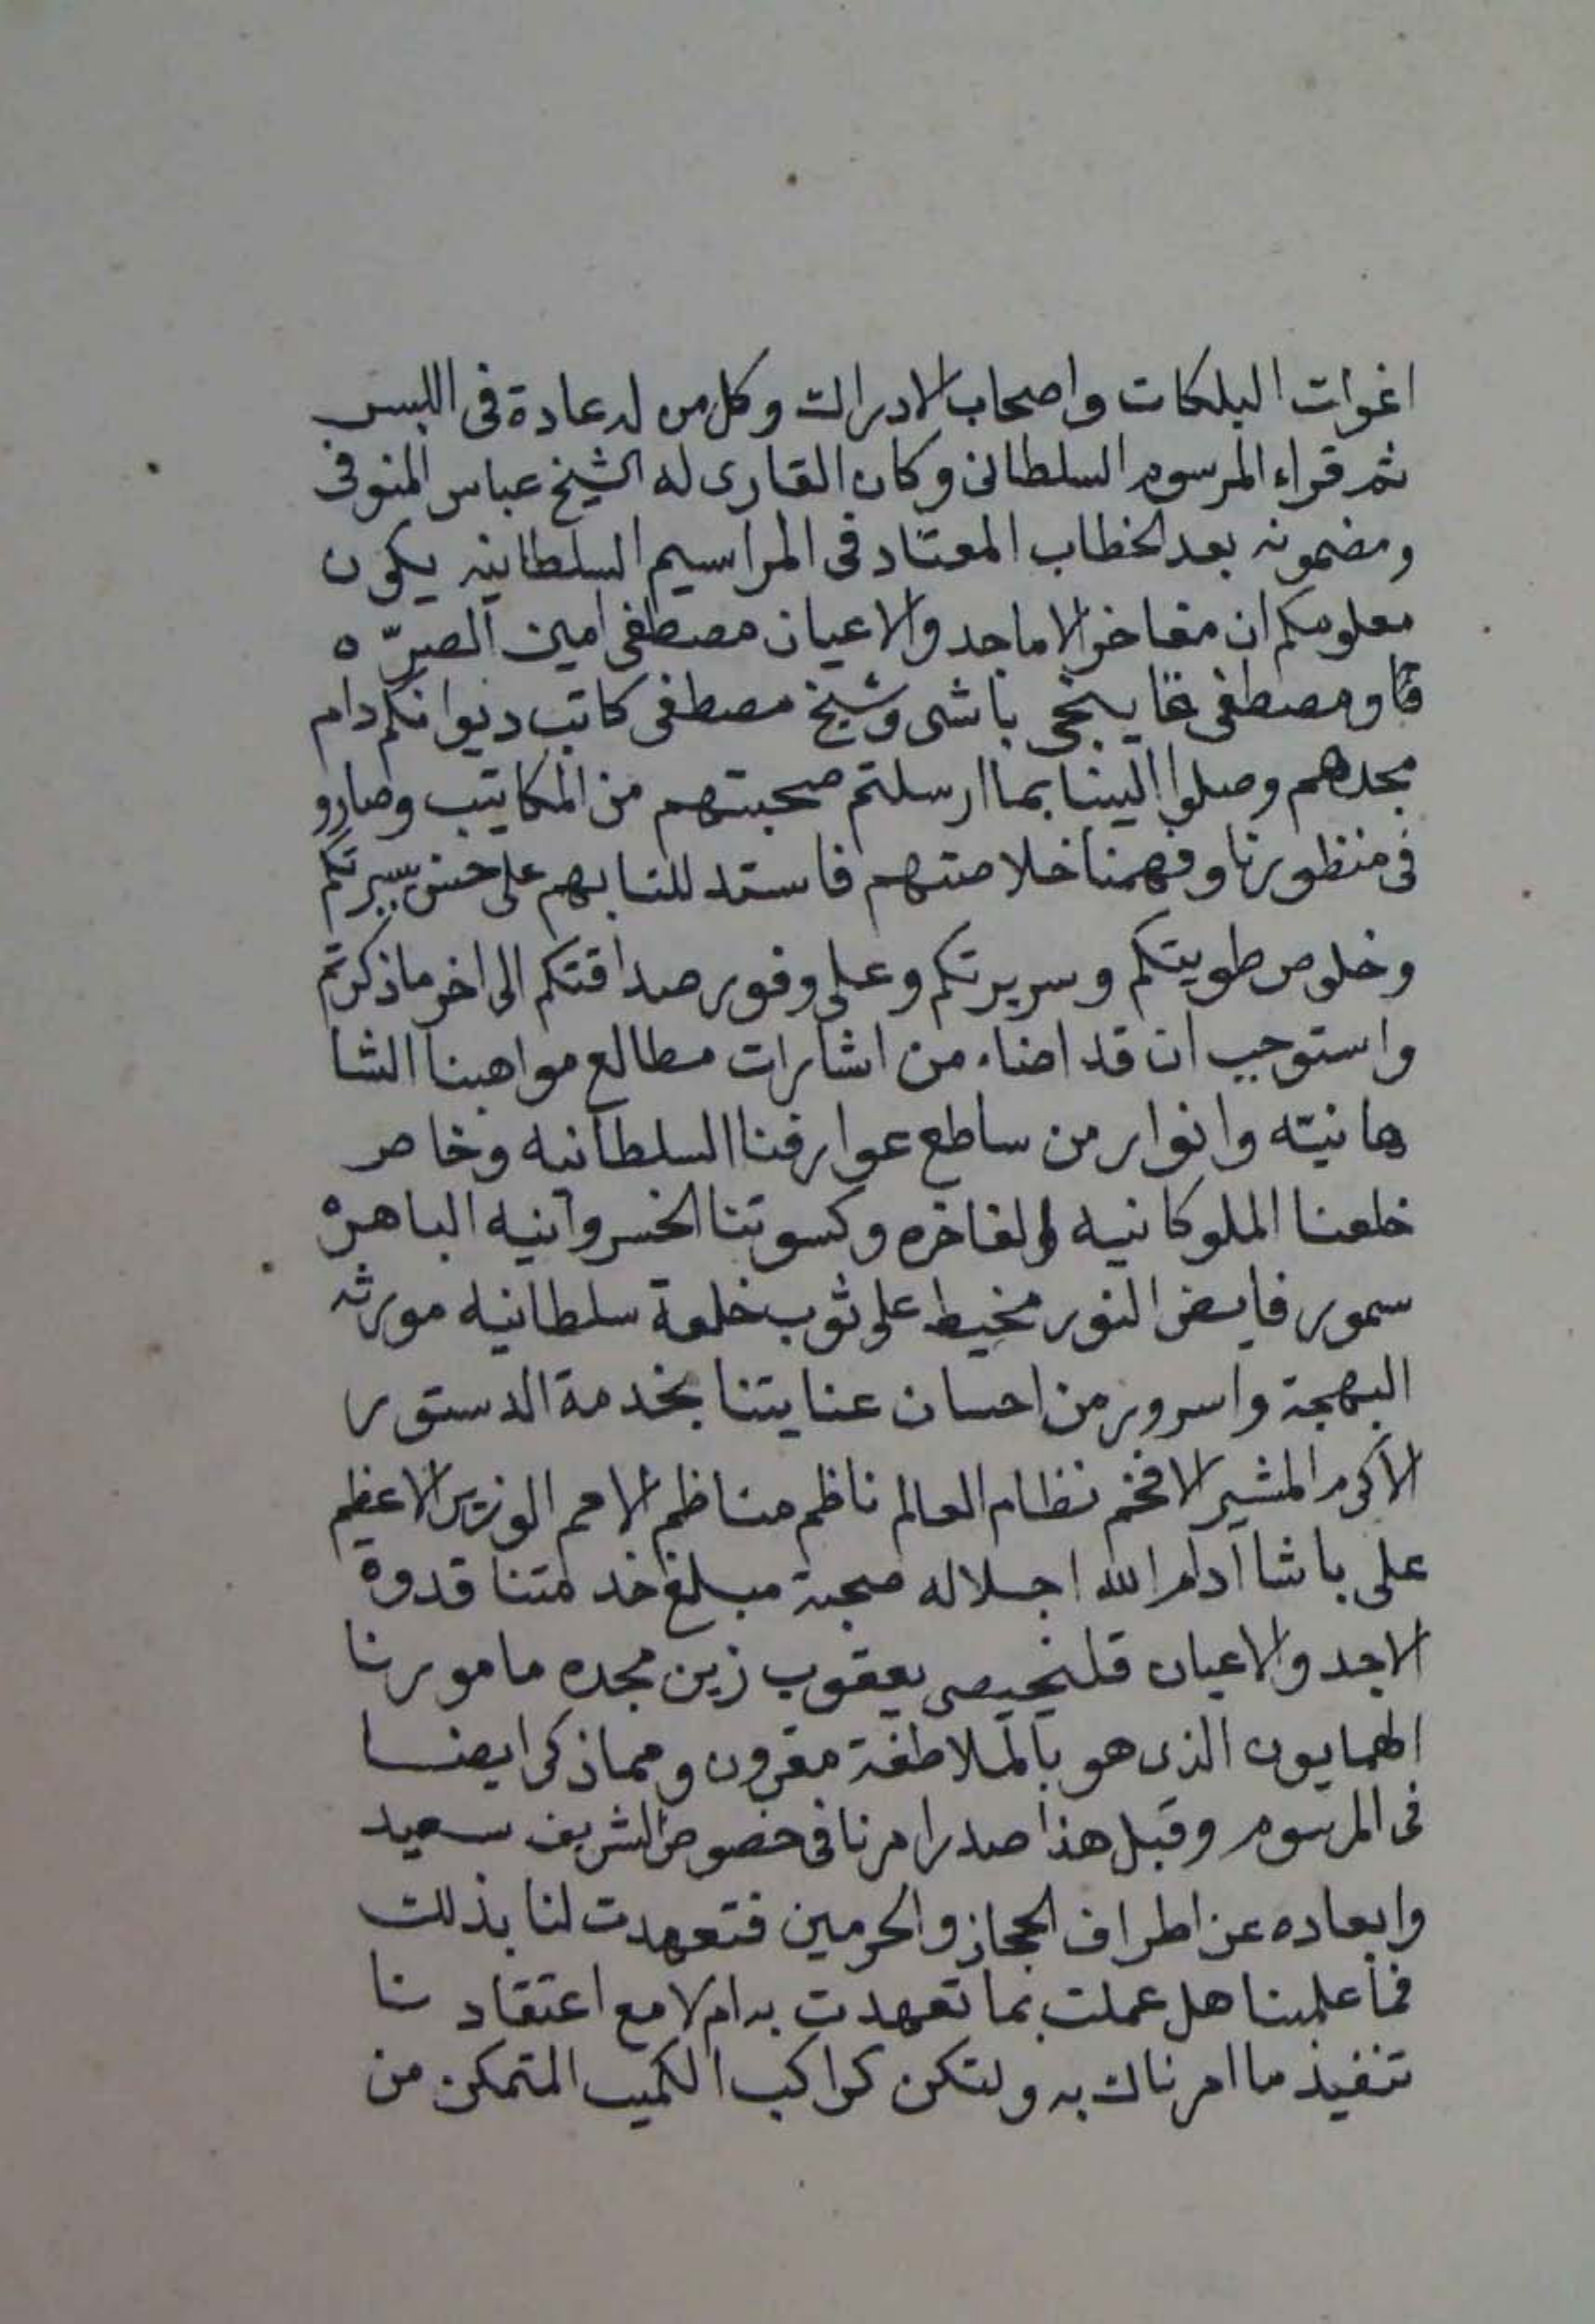 اغوات البلكات واصحاب الادراك وكل من له عادة فى اللبس
ثم قراء المرسوم السلطانى وكان القارى له الشيخ عباس المنوفى
ومضمونه بعد الخطاب المعتاد فى المراسيم السلطانيه يكون
معلومكم ان مفاخر الاماجد والاعيان مصطفى امين الصرّه
ومصطفى باشى وشيخ مصطفى كاتب ديوانكم دام
مجدهم وصلوا الينا بما ارسلتم صحبتهم من المكاتيب وصارو
فى منظورنا وفهمنا خلاصتهم فاستدللنا بهم على حسن سيرتكم
وخلوص طويتكم وسريرتكم وعلى وفور صداقتكم الى اخر ماذكرتم
واستوجب ان قد اضاء من اشارات مطالع مواهبنا الشا
هانيته وانوار من ساطع عوارفنا السلطانيه وخاص
خلعنا الملوكانيه الفاخره وكسوتنا الخسروانيه الباهره
سمور فايض النور مخيط على ثوب خلعة سلطانيه مورثه
البهجة واسرور من احسان عنايتنا بخدمة الدستور
الاكرم المشير الافخم نظام العالم ناظم مناظم الامم الوزير الاعظم
على باشا ادام الله اجلاله صحبة مبلغ خدمتنا قدوة
الاجد والاعيان يعقوب زين مجده مامورنا
الهمايون الذى هو بالملاطفة مقرون ومماذكر ايضا
فى المرسوم وقبل هذا صدر امرنا فى خصوص الشريف سعيد
وابعاده عن اطراف الحجاز والحرمين فتعهدت لنا بذلك
فمأعلمنا هل عملت بما تعهدت به ام لا مع اعتقادنا
تنفيذ ما امرناك به ولتكن كراكب الكميت المتمكن من